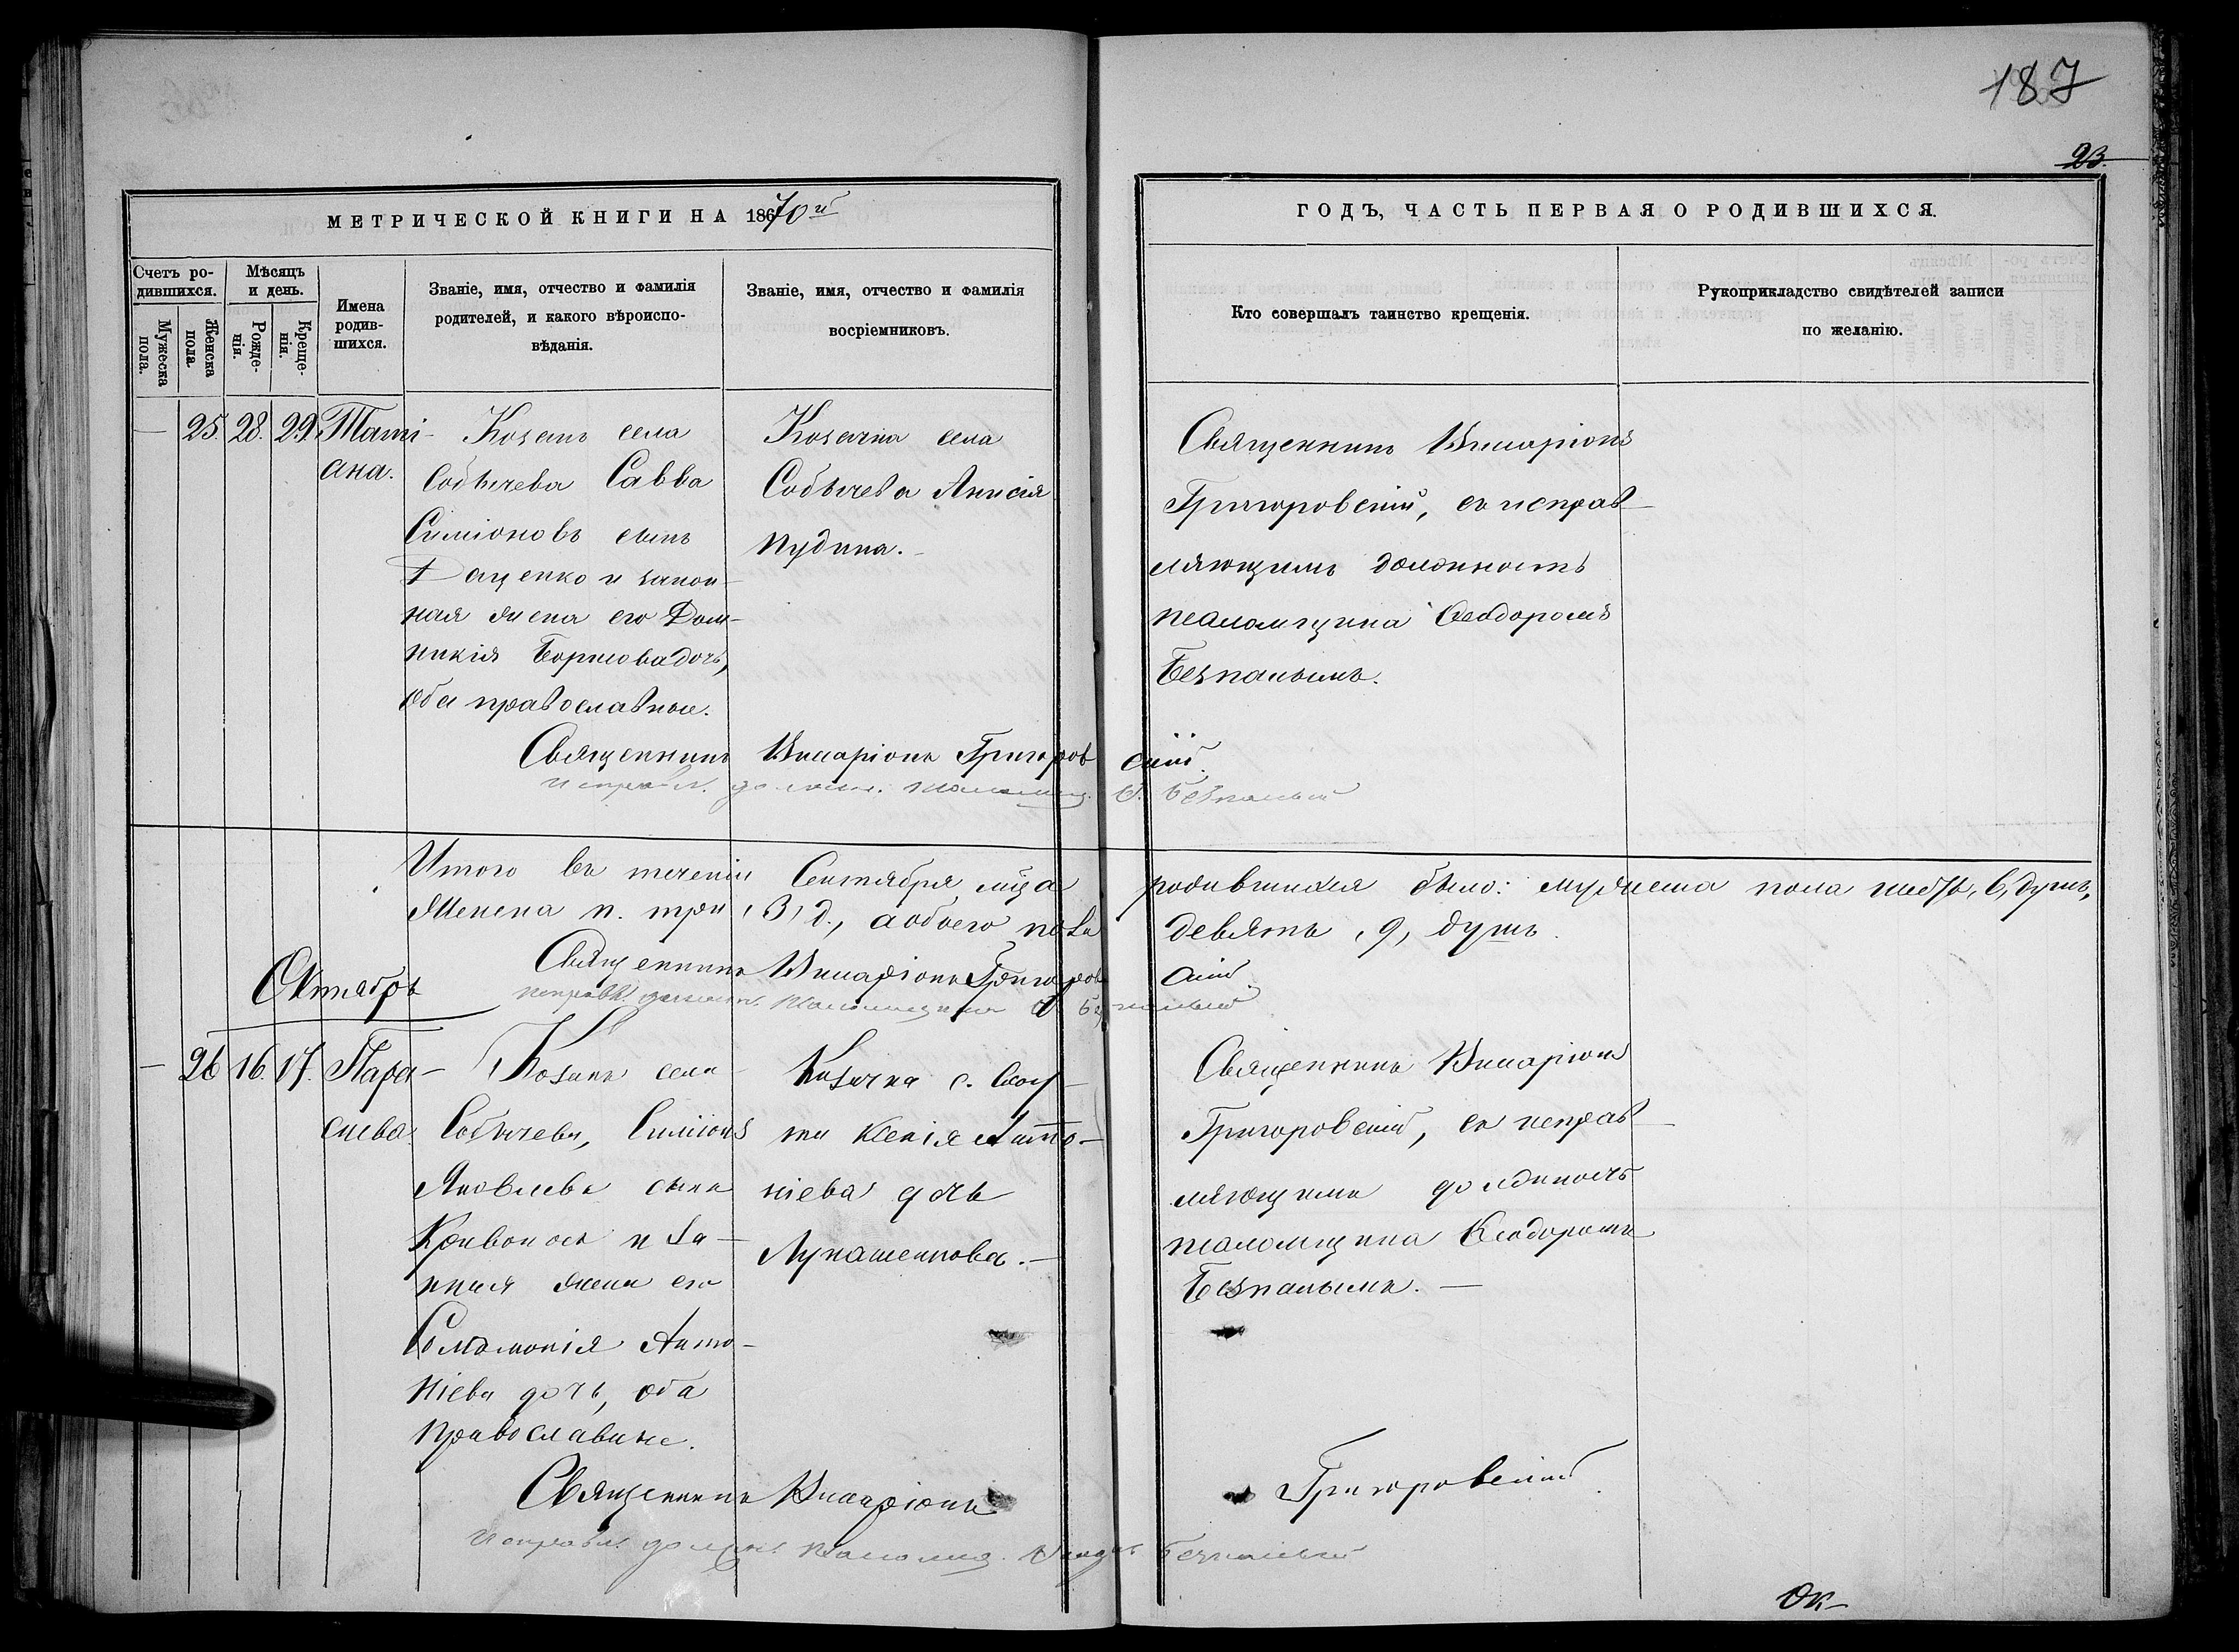 187
23.
МЕТРИЧЕСКОЙ КНИГИ НА 1870й
ГОДЪ, ЧАСТЬ ПЕРВАЯ О РОДИВШИХСЯ.
Счетъ ро-
дившихся.
Мужеска
пола.
Женска
пола
Мѣсяцъ
и день.
Рожде-
нія.
Креще-
нія.
Имена
родив-
шихся.
Званіе, имя, отчество и фамилія
родителей, и какого вѣроиспо-
вѣданія.
Званіе, имя, отчество и фамилія
воспріемниковъ.
Кто совершалъ таинство крещенія.
Рукоприкладство свидѣтелей записи
по желанію.
— 25. 28. 29. Таті-
ана.
Козакъ села
Собычева Савва
Симіоновъ сынъ
Даценко и закон-
ная жена его Дом-
никія Борисова дочь,
оба православные.
Козачка села
Собычева Анисія
Кудина.
Священникъ Иларіонъ
Григоровскій, съ исправ-
ляющимъ должность
псаломщика Ѳеодоромъ
Безпалымъ.
Священникъ Иларіонъ Григоровскій.
Исправл. должн. псаломщ. Ѳ. Безпалый
Итого въ теченіи Сентября мѣца родившихся было: мужеска пола шесть, 6, душъ,
Женска п. три, 3, д., а обоего пола девять, 9, душъ.
Священникъ Иларіонъ Григоровскій
исправл. должность псаломщика Ѳ. Безпалый
Октябрь
— 26 16. 17. Пара-
скева
Козакъ села
Собычева, Симіонъ
Яковлевъ сынъ
Кривоносъ и за-
кная жена его
Соломонія Анто-
ніева дочь, оба
православные.
Козачка с.
Ксенія Анто-
ніева дочь
Лукашенкова.—
Священникъ Иларіонъ
Григоровскій, съ исправ-
ляющимъ должность
псаломщика Ѳеодоромъ
Безпалымъ.—
Священникъ Иларіонъ Григоровскій.
Исправл. должн. псаломщ. Безпалый
Ок-